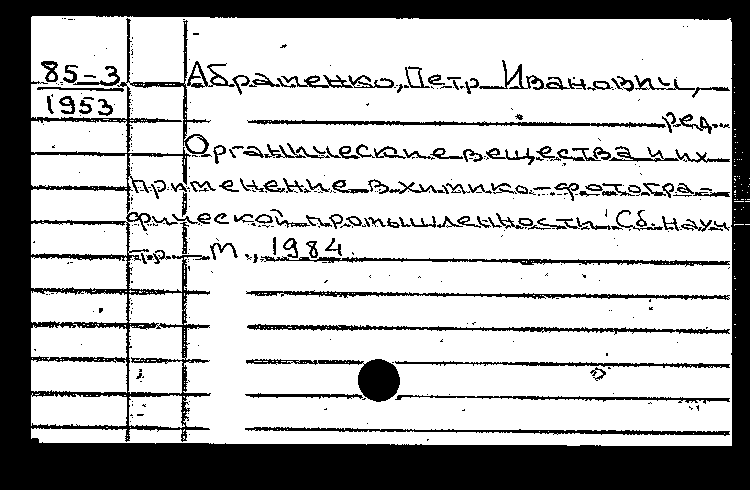 85-3
1953
Абраменко, Петр Иванович,
ред.
Органические вещества и их
применение в химико-фотогра-
фической промышленности: Сб. науч
тр. — М., 1984.